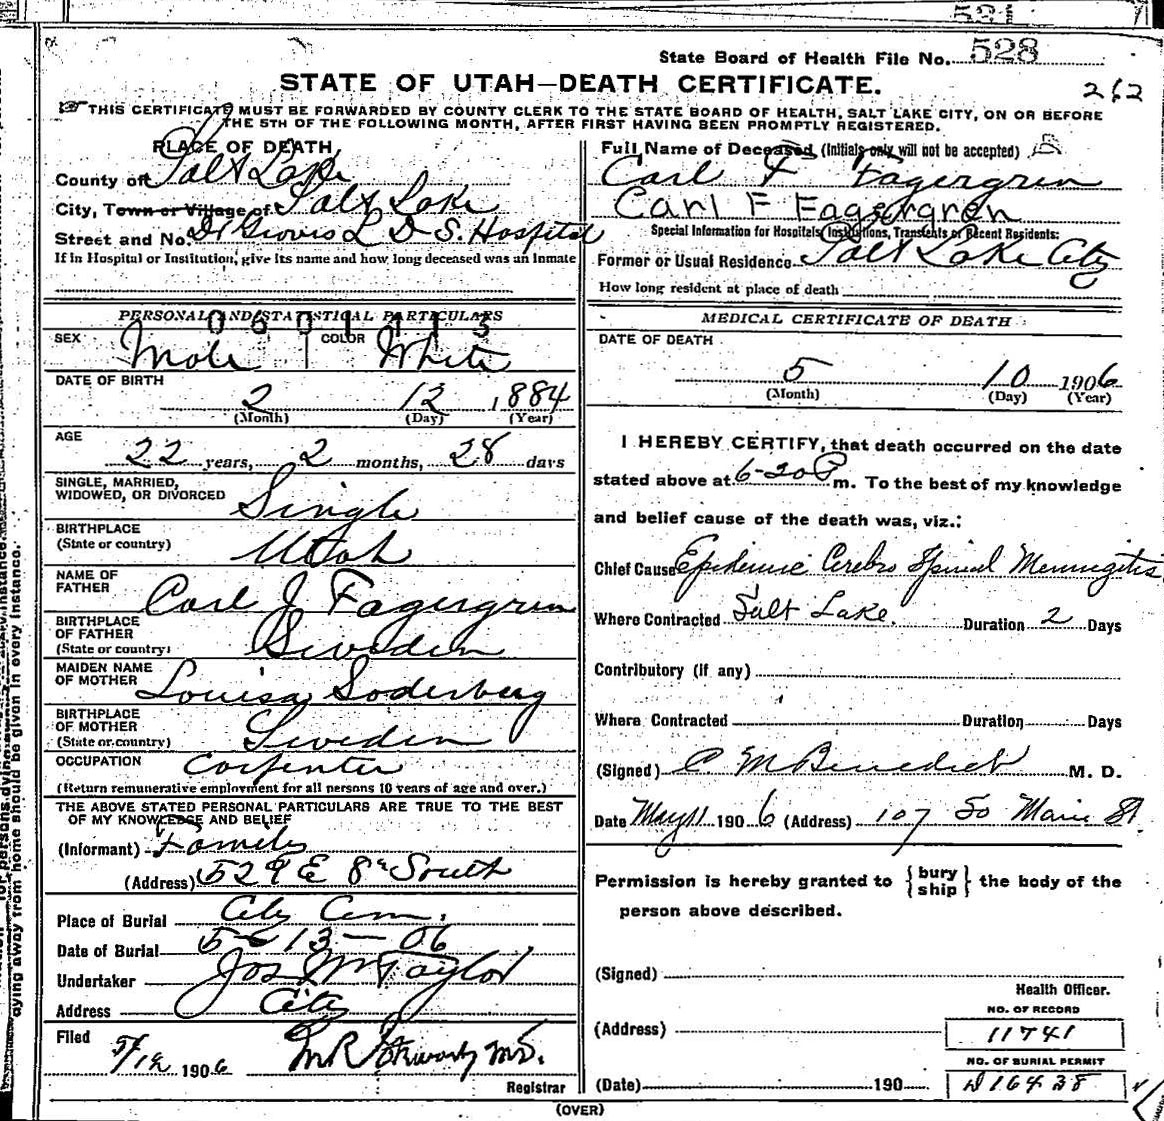 521
State Board of Health File No. 528
STATE OF UTAH—DEATH CERTIFICATE.
262
THIS CERTIFICATE MUST BE FORWARDED BY COUNTY CLERK TO THE STATE BOARD OF HEALTH, SALT LAKE CITY, ON OR BEFORE
THE 5TH OF THE FOLLOWING MONTH, AFTER FIRST HAVING BEEN PROMPTLY REGISTERED.
PLACE OF DEATH
County of Salt Lake
City, Town or Village of Salt Lake
Street and No. Dr Groves L D S. Hospital
If in Hospital or Institution, give its name and how long deceased was an inmate
Full Name of Deceased (Initials only will not be accepted)
Carl F Fagergren
Carl F Fagergren
Special Information for Hospitals, Institutions, Transients or Recent Residents:
Former or Usual Residence Salt Lake City
How long resident at place of death
PERSONAL AND STATISTICAL PARTICULARS
0601113
SEX Male COLOR White
DATE OF BIRTH
2 12 1884
(Month) (Day) (Year)
AGE
22 years, 2 months, 28 days
SINGLE, MARRIED,
WIDOWED, OR DIVORCED Single
BIRTHPLACE
(State or country) Utah
NAME OF
FATHER Carl J Fagergren
BIRTHPLACE
OF FATHER
(State or country) Sweden
MAIDEN NAME
OF MOTHER Louisa Soderberg
BIRTHPLACE
OF MOTHER
(State or country) Sweden
OCCUPATION Carpenter
(Return remunerative employment for all persons 10 years of age and over.)
THE ABOVE STATED PERSONAL PARTICULARS ARE TRUE TO THE BEST
OF MY KNOWLEDGE AND BELIEF
(Informant) Family
(Address) 529 E 8th South
Place of Burial City Cem.
Date of Burial 5-13-06
Undertaker Jos Wm Taylor
Address City
Filed
5/12 1906 M.D.
Registrar
MEDICAL CERTIFICATE OF DEATH
DATE OF DEATH
5 10 1906
(Month) (Day) (Year)
I HEREBY CERTIFY, that death occurred on the date
stated above at 6-20 P m. To the best of my knowledge
and belief cause of the death was, viz.:
Chief Cause Epidemic Cerebro Spinal Meningitis
Where Contracted Salt Lake. Duration 2 Days
Contributory (if any)
Where Contracted Duration Days
(Signed) C M Benedict M. D.
Date May 11 1906 (Address) 107 So Main St
Permission is hereby granted to { bury ship } the body of the
person above described.
(Signed)
Health Officer.
(Address)
NO. OF RECORD
11741
NO. OF BURIAL PERMIT
(Date) 190 D16438
(OVER)
dying away from home should be given in every instance.